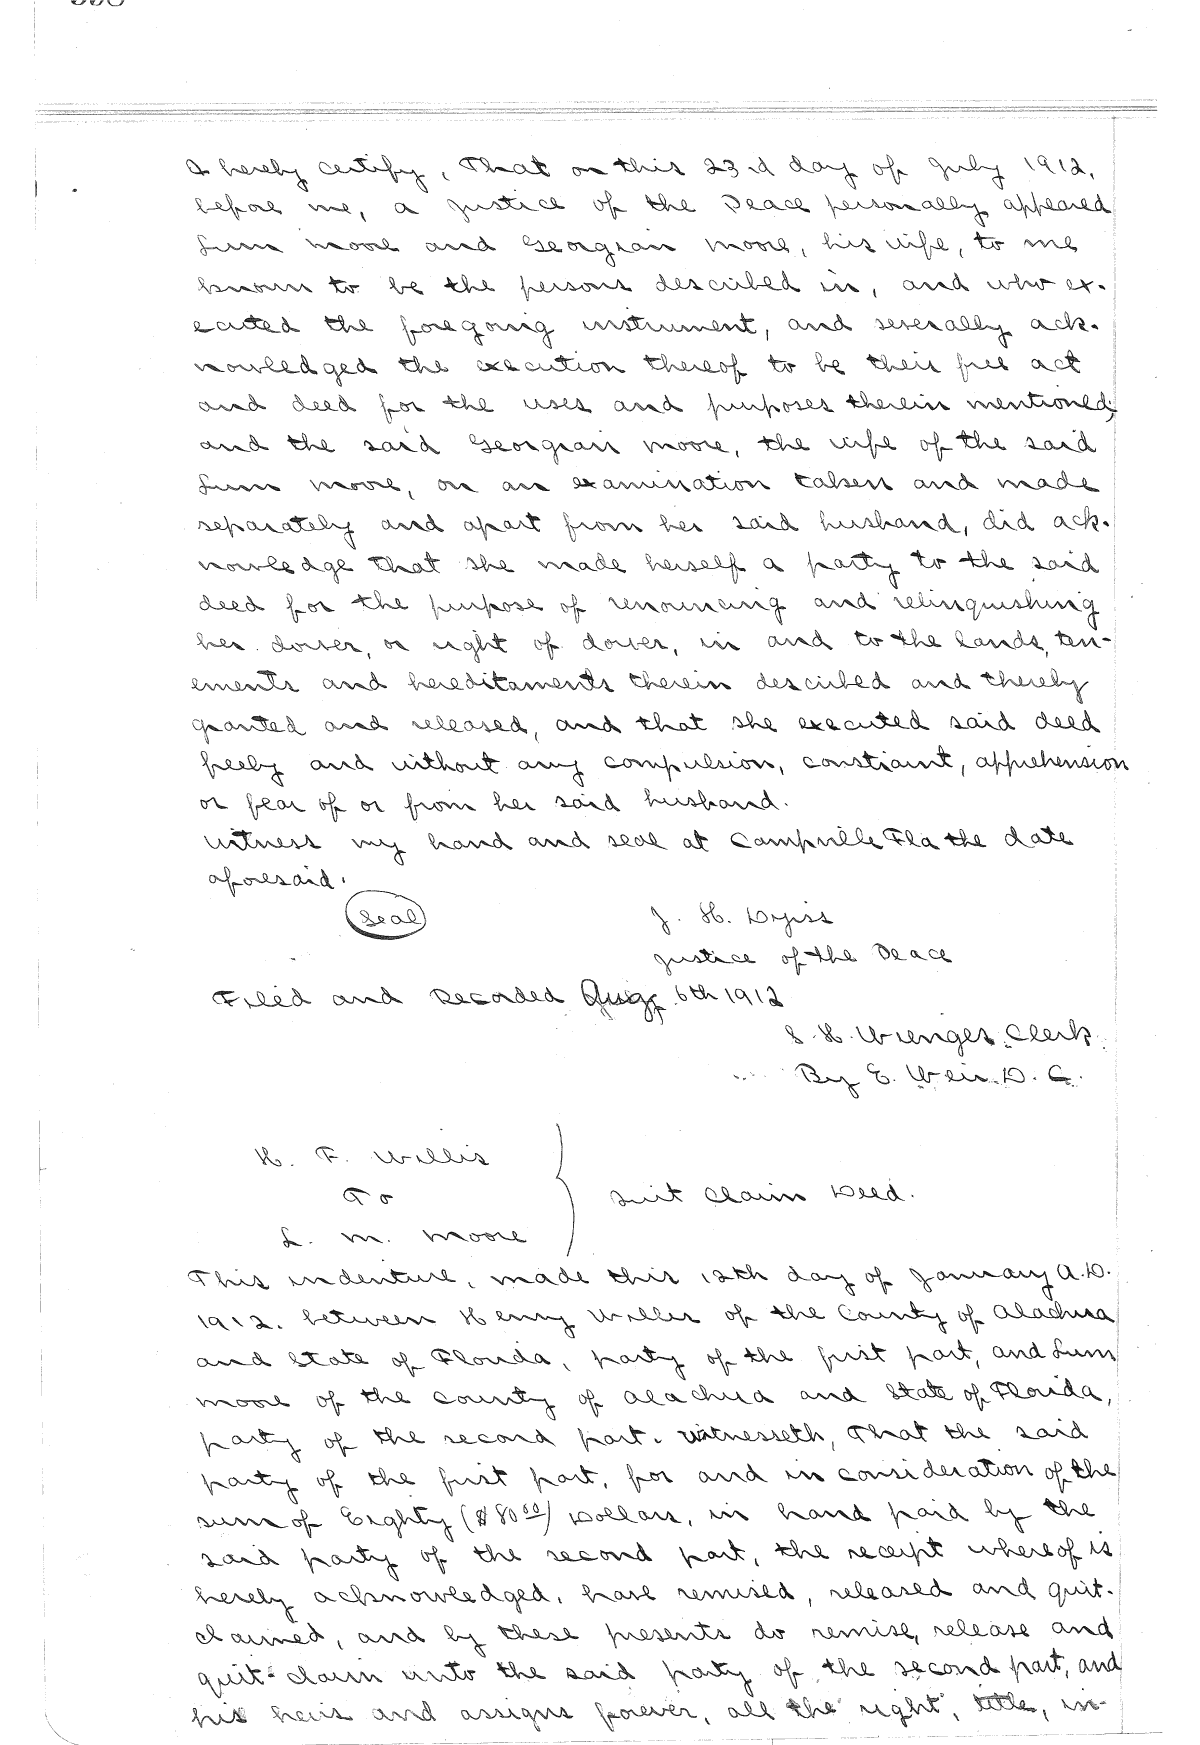 I hereby certify, That on this 23rd day of July 1912,
before me, a Justice of the Peace personally appeared
Lum Moore and Georgian Moore, his wife, to me
known to be the persons described in, and who ex-
ecuted the foregoing instrument, and severally ack-
nowledged the execution thereof to be their free act
and deed for the uses and purposes therein mentioned;
and the said Georgian Moore, the wife of the said
Lum Moore, on an examination taken and made
separately and apart from her said husband, did ack-
nowledge that she made herself a party to the said
deed for the purpose of renouncing and relinquishing
her dower, or right of dower, in and to the lands, ten-
ements and hereditaments therein described and thereby
granted and released, and that she executed said deed
freely and without any compulsion, constraint, apprehension
or fear of or from her said husband.
Witness my hand and seal at Campville Fla the date
aforesaid.
Seal
J. H.
Justice of the Peace
Filed and Recorded Aug 6th 1912
S. H. Wienges, Clerk
By E. Weir D. C.
H. F. Willis
To
L. M. Moore
Quit Claim Deed.
This indenture, made this 12th day of January A.D.
1912. between Henry Willis of the County of Alachua
and State of Florida, party of the first part, and Lum
Moore of the County of Alachua and State of Florida,
party of the second part. Witnesseth, That the said
party of the first part, for and in consideration of the
sum of Eighty ($80.00) Dollars, in hand paid by the
said party of the second part, the receipt whereof is
hereby acknowledged, have remised, released and quit-
claimed, and by these presents do remise, release and
quit-claim unto the said party of the second part, and
his heirs and assigns forever, all the right, title, in-